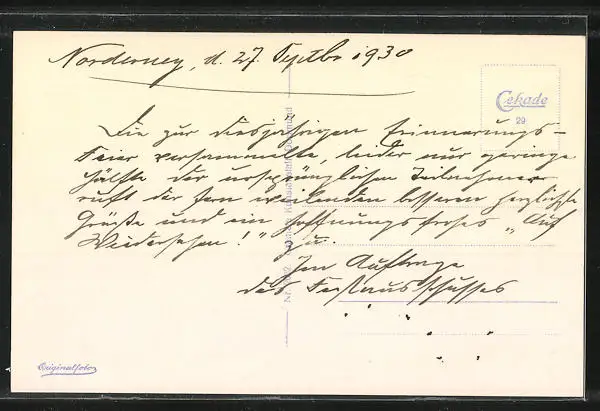 Norderney, d. 27. Septbr 1930
Cekade
29
Die zur diesjährigen Erinnerungs-
Feier versammelte, leider nur geringe
Hälfte der ursprünglichen Teilnehmer
ruft der fern weilenden besseren herzlichste
Grüße und ein hoffnungsfrohes „Auf
Wiedersehen!" zu.
Im Auftrage
des Festausschusses
Originalfoto